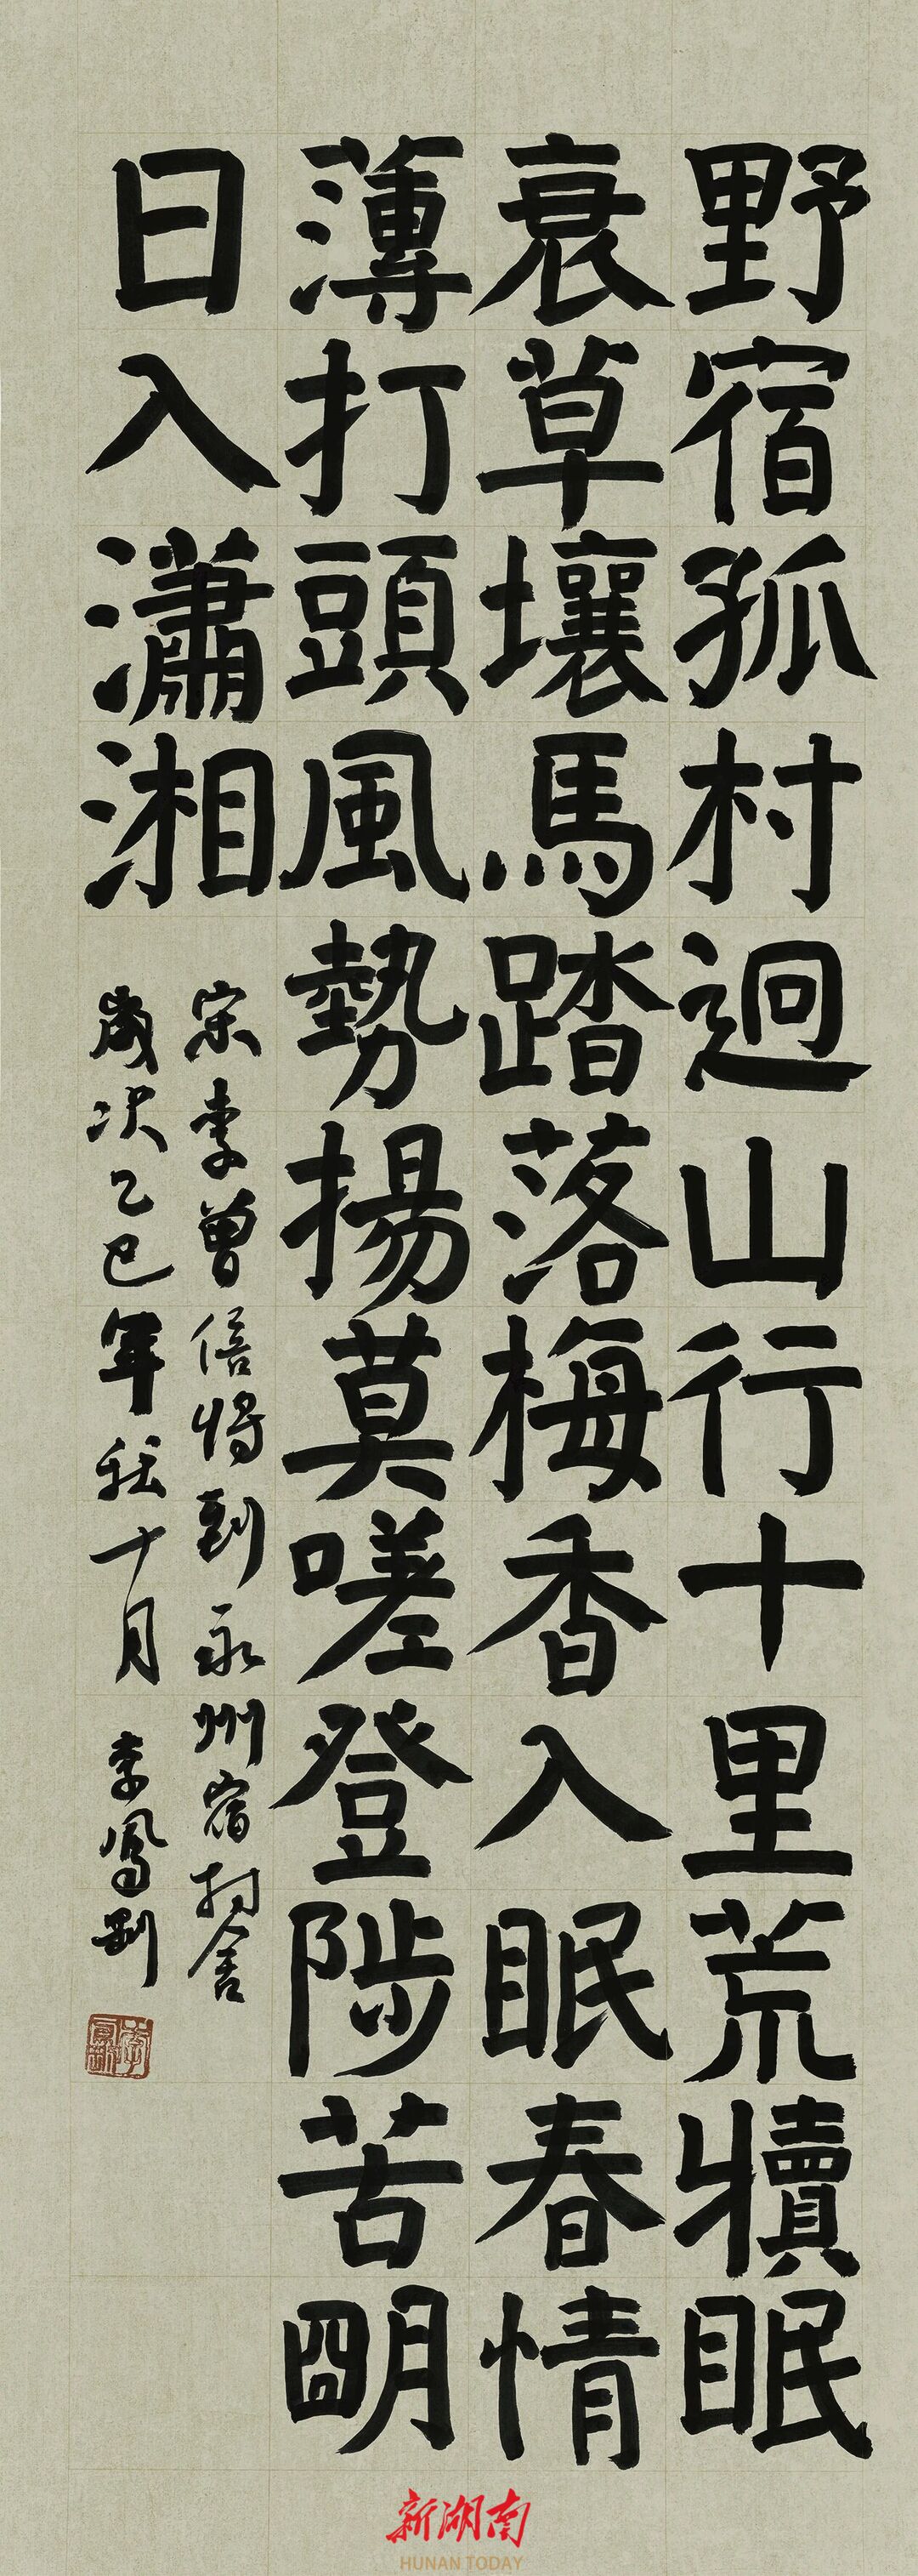 野宿孤村迥山行十里荒犢眠
衰草壤馬踏落梅香入眠春情
薄打頭風勢揚莫嗟登陟苦明
日入瀟湘
宋李曾伯将到永州宿村舍
歲次乙巳年秋十月 李鳳剛
新湖南
HUNAN TODAY